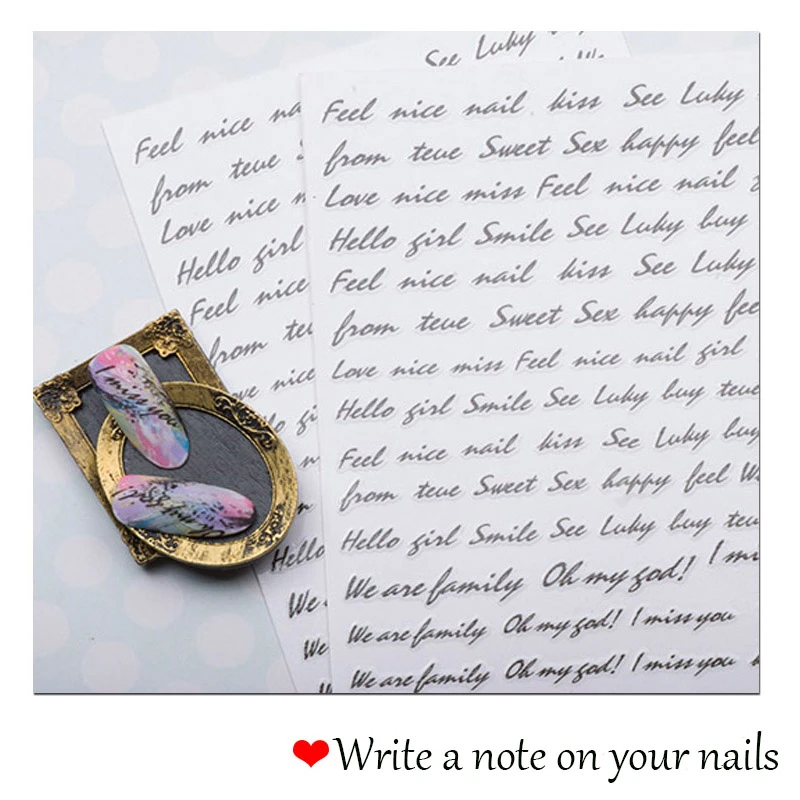 See Luky
Feel nice na
from teue S
Love nice n
Hello girl
Feel nice
from teu
ve nice
lo gi
n
Hello
We
We
Feel nice nail kiss See Luky
from teue Sweet Sex happy feel
Love nice miss Feel nice nail
Hello girl Smile See Luky buy
Feel nice nail kiss See Luky
from teue Sweet Sex happy fee
Love nice miss Feel nice nail girl
Hello girl Smile See Luky buy teue
Feel nice nail kiss See Luky buy
from teue Sweet Sex happy feel W
Hello girl Smile See Luky buy teu
We are family Oh my god! I mi
We are family Oh my god! I miss you
We are family Oh my god! I miss you
I miss you
❤Write a note on your nails